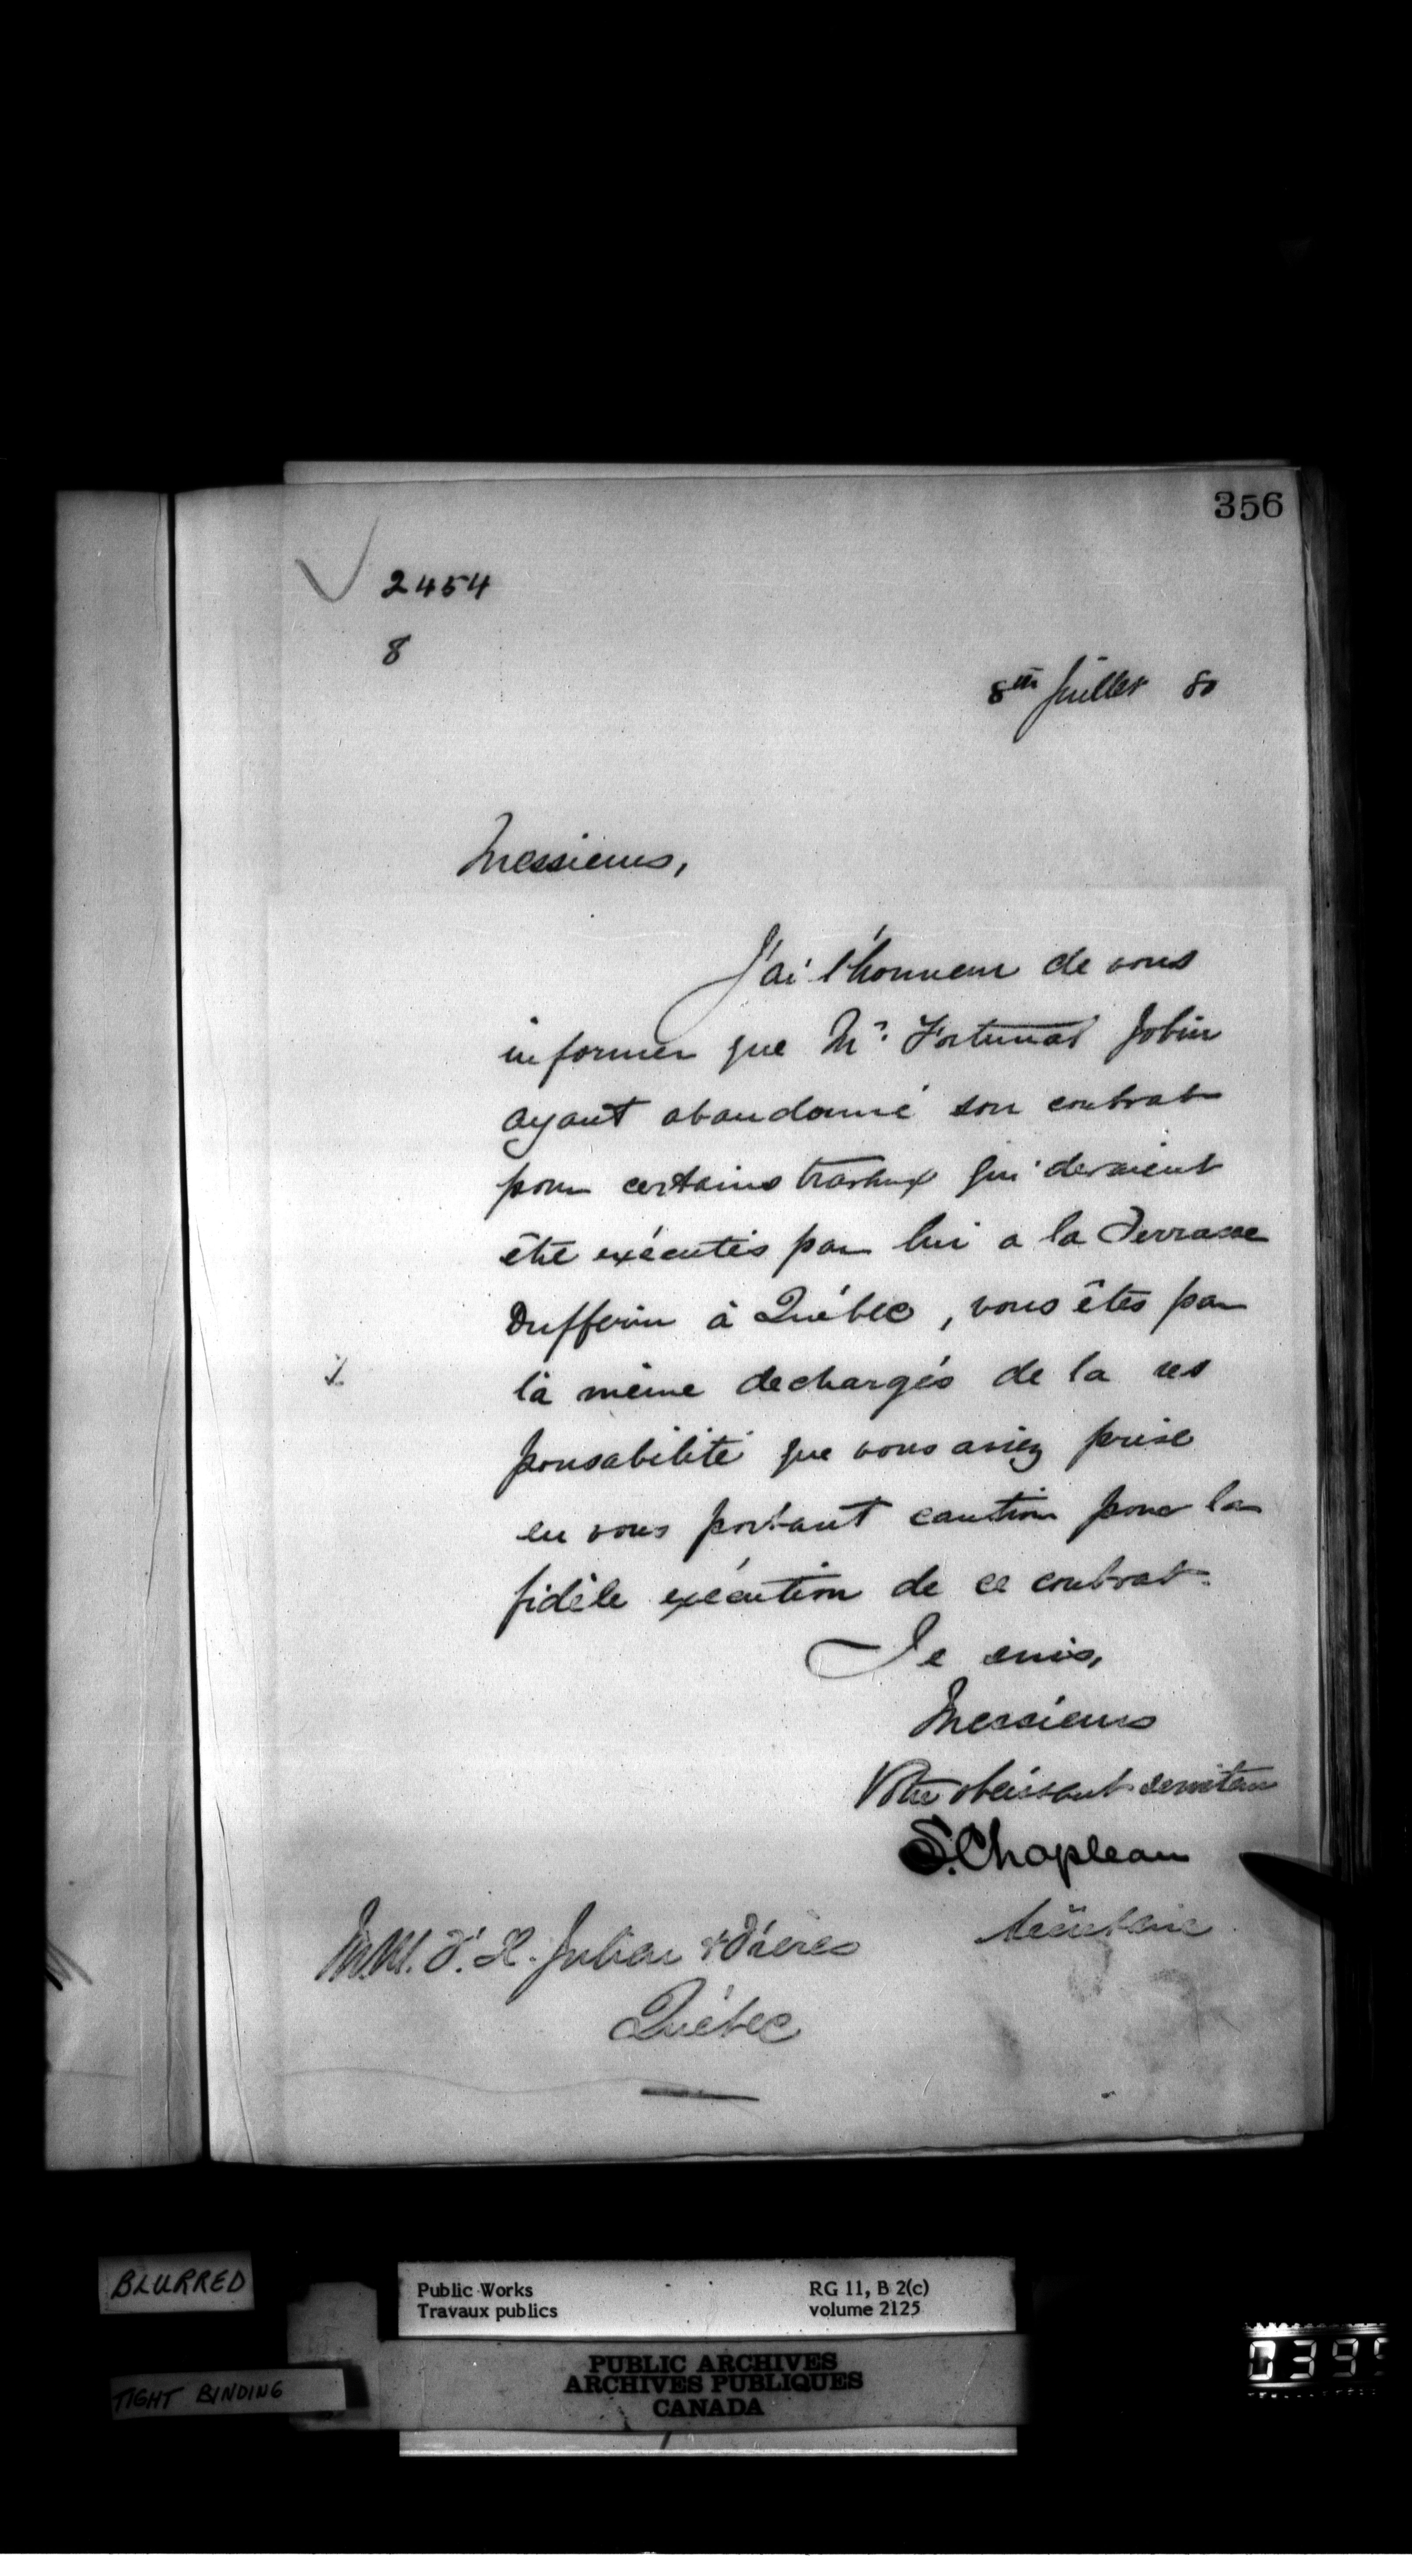 356
2454
8
8th Juillet 80
Messieurs,
J'ai l'honneur de vous
informer que Mr. Fortunat Jobin
ayant abandonné son contrat
pour certains travaux qui devaient
être exécutés par lui a la Terrasse
Dufferin à Québec, vous êtes par
là même dechargés de la res
ponsabilité que vous aviez prise
en vous portant caution pour la
fidèle exécution de ce contrat.
Je suis,
Messieurs
Votre obeissant serviteur
S. Chapleau
Secrétaire
M.M. Julien & Frères
Québec
BLURRED
TIGHT BINDING
Public Works
Travaux publics
RG 11, B 2(c)
volume 2125
PUBLIC ARCHIVES
ARCHIVES PUBLIQUES
CANADA